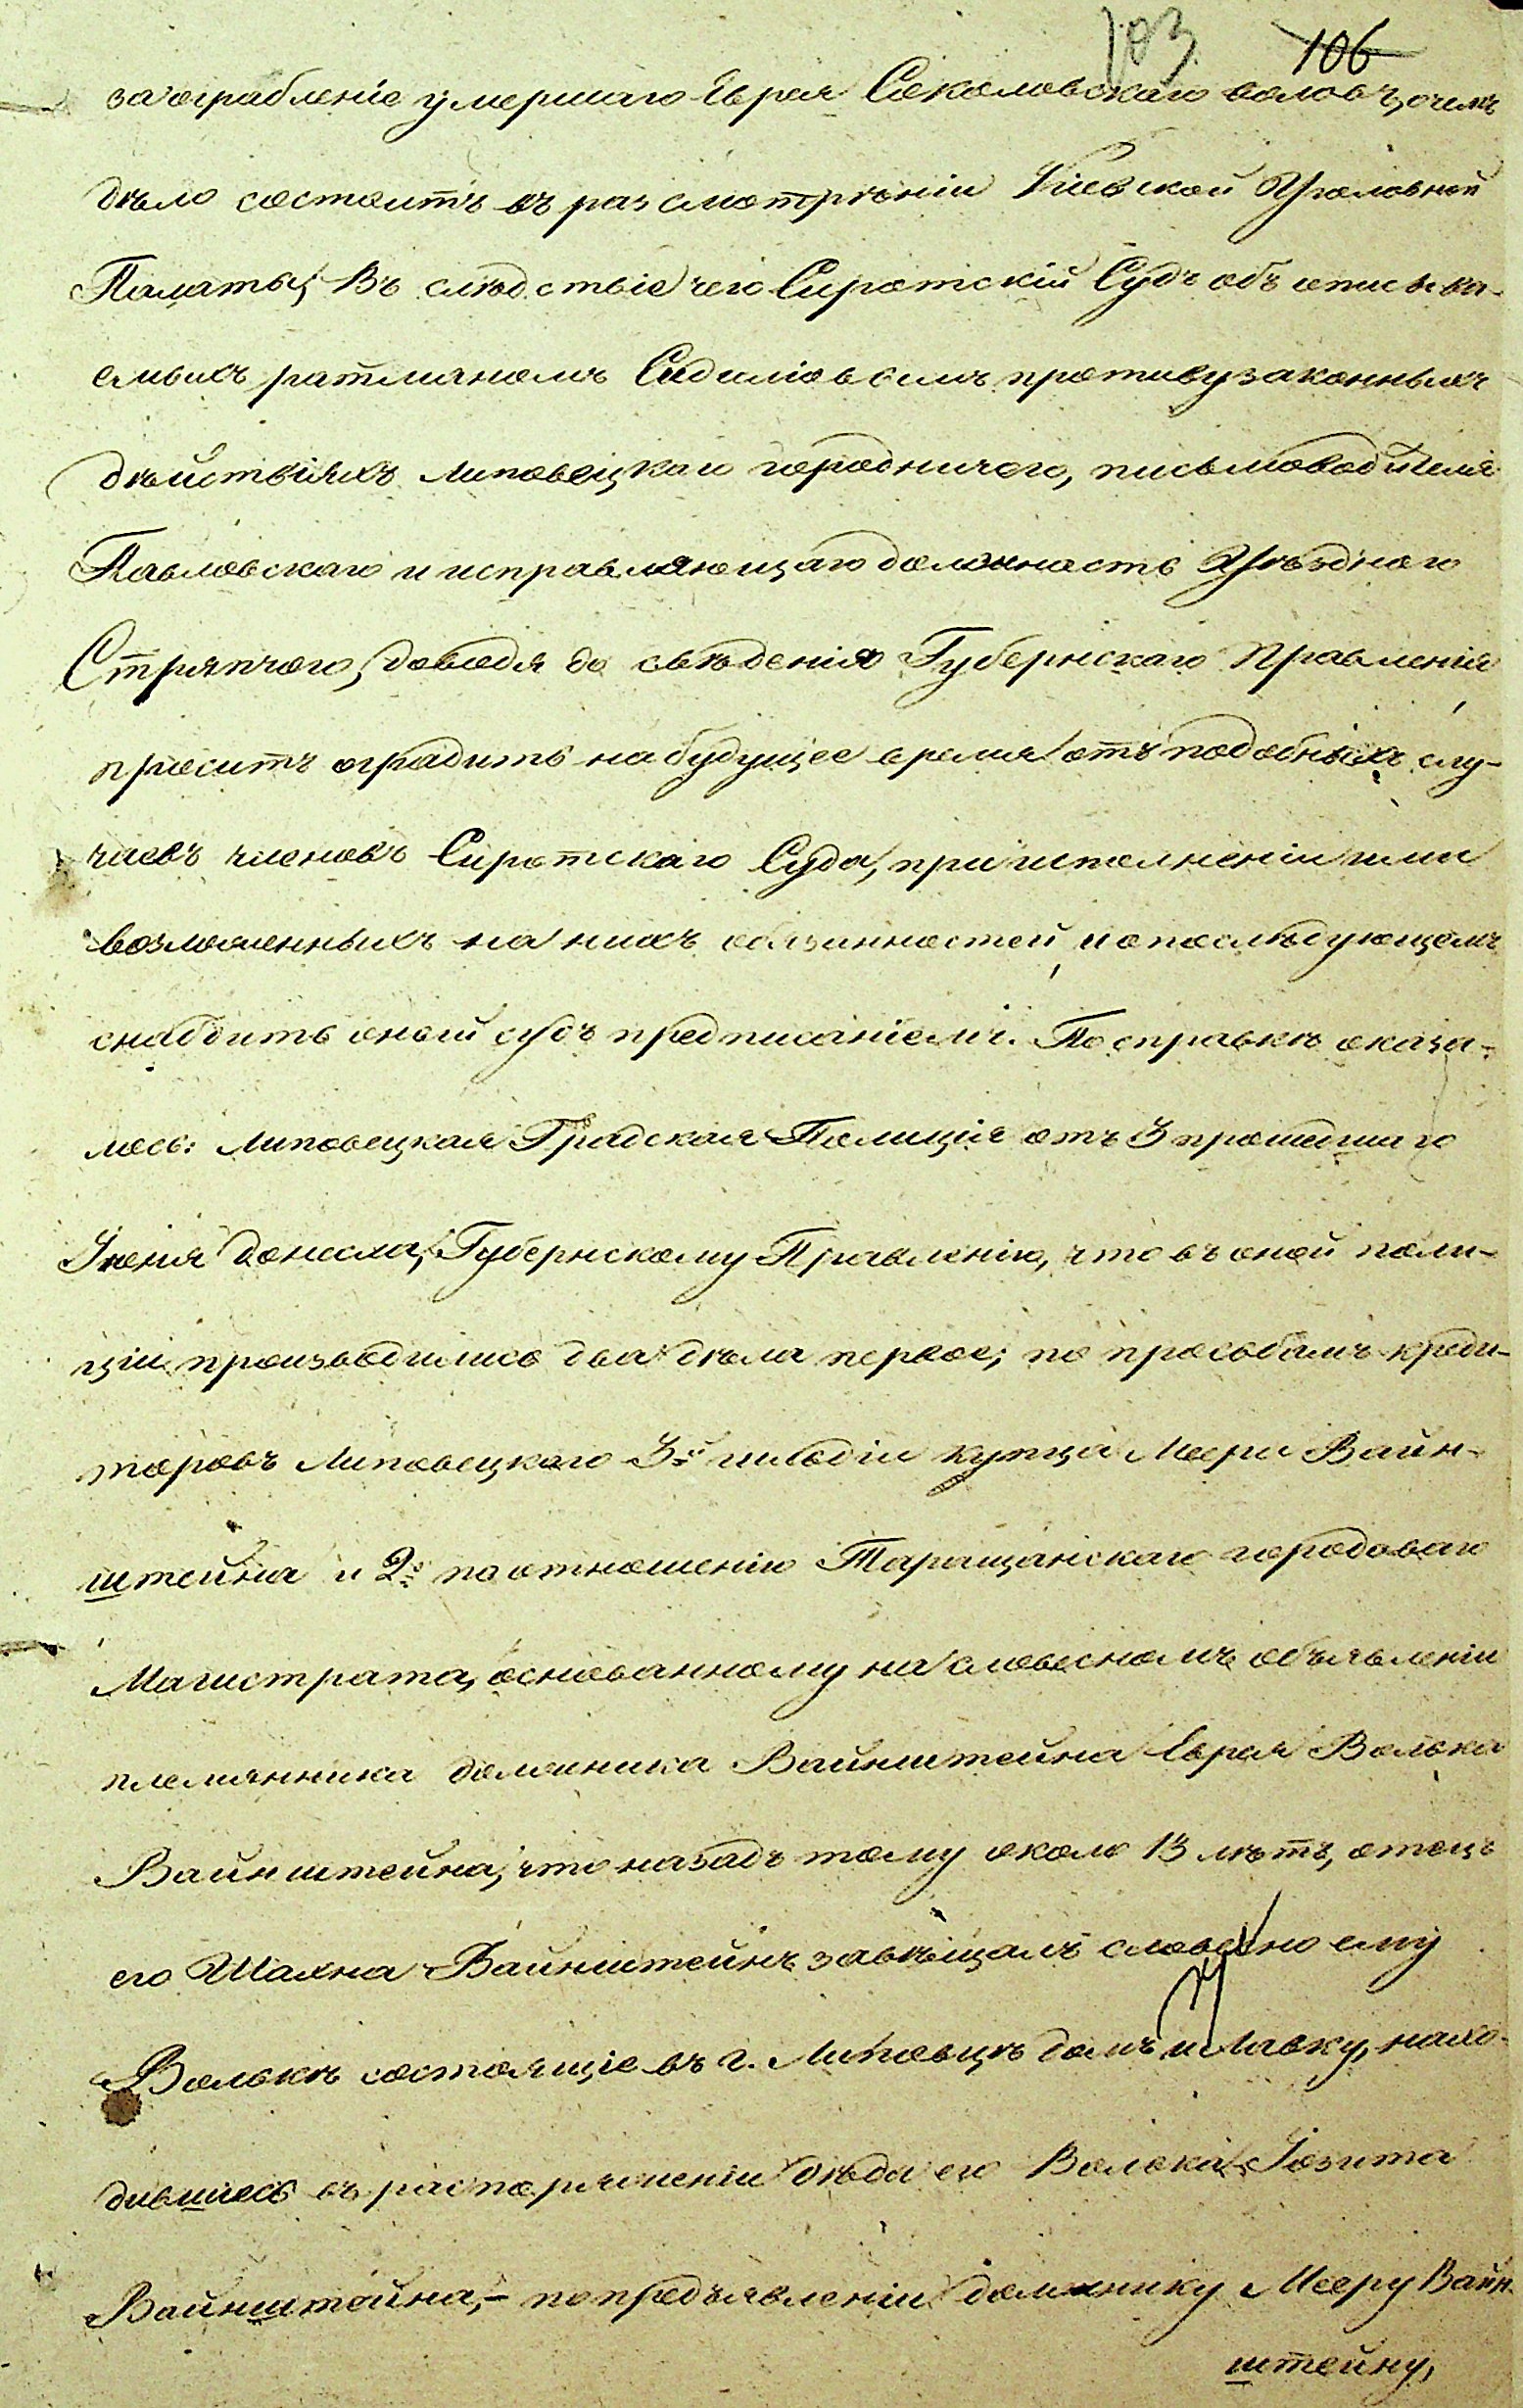 103 106
за ограбленіе умершаго Еврея Соколовскаго воловъ, о чемъ
дѣло состоитъ въ разсмотрѣніи Кіевской Уголовной
Палаты, Въ слѣдствіе чего Сиротскій Судъ объ описыва-
емыхъ ратманомъ противузаконныхъ
дѣйствіяхъ Липовецкаго городничого, письмоводителя
Павловскаго и исправляющаго должность Уѣзднаго
Стряпчого, доводя до свѣденія Губернскаго Правленія
проситъ оградить на будущее время отъ подобныхъ слу-
чаевъ членовъ Сиротскаго Суда, при исполненіи ими
возложенныхъ на нихъ обязанностей, и о послѣдующемъ
снабдить оный судъ предписаніемъ. По справкѣ оказа-
лось: Липовецкая Градская Полиція отъ 3 прошедшаго
Іюня донесла, Губернскому Правленію, что въ оной поли-
ціи производились два дѣла первое; по прозьбамъ креди-
торовъ Липовецкаго 3й гильдіи купца Меера Вайн-
штейна и 2е по отношенію Таращанскаго городоваго
Магистрата, основанному на словесномъ объявленіи
племянника должника Вайнштейна Еврея Волька
Вайнштейна, что назадъ тому около 13 лѣтъ, отецъ
его Шахна Вайнштейнъ завѣщалъ словесно ему
Волькѣ состоящіе въ г. Липовцѣ домъ и лавку, нахо-
дившіесь въ распоряженіи дѣда его Волька, Іозипа
Вайнштейна,- по предъявленіи должнику Мееру Вайн-
штейну,